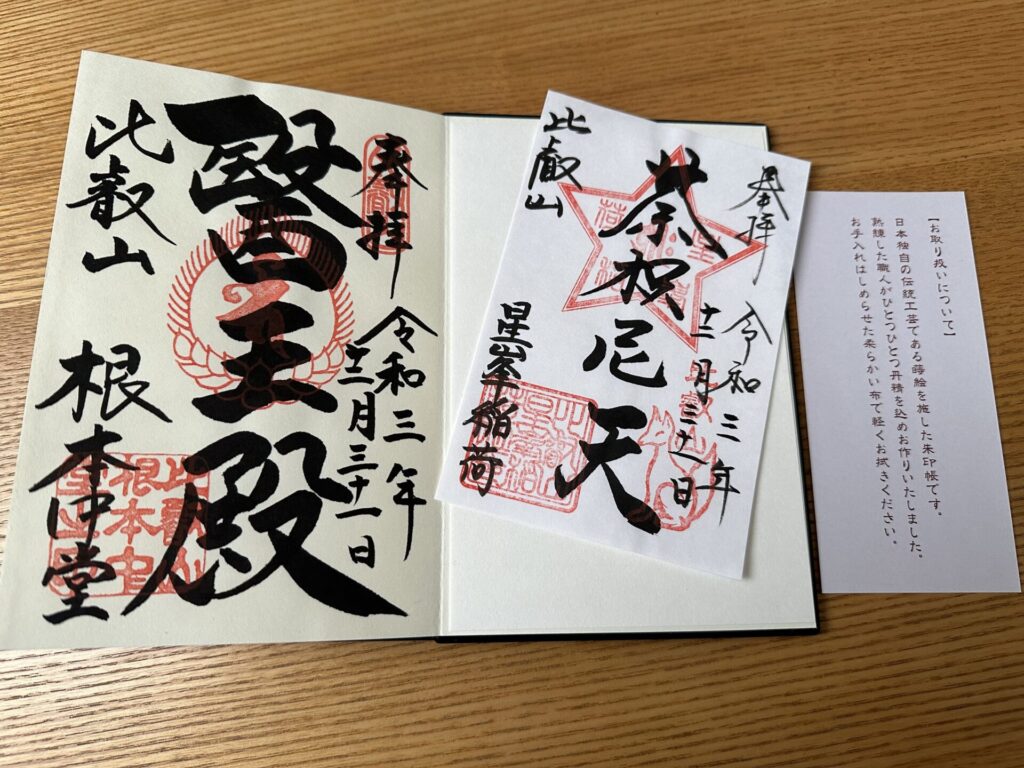 奉拝
令和三年
十二月三十一日
醫王殿
比叡山 根本中堂
奉拝
令和三年
十二月三十一日
荼枳尼天
比叡山
星峯稲荷
【お取り扱いについて】
日本独自の伝統工芸である蒔絵を施した朱印帳です。
熟練した職人がひとつひとつ丹精を込めお作りいたしました。
お手入れはしめらせた柔らかい布で軽くお拭きください。